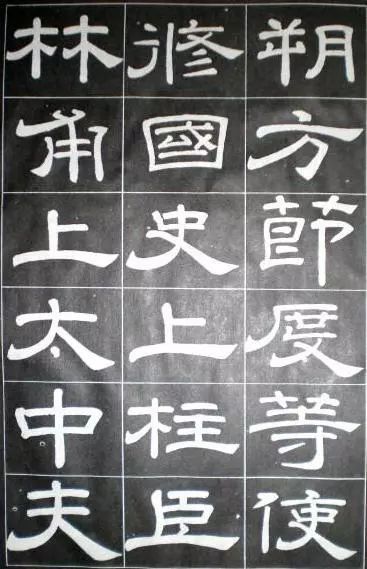 朔方節度等使
修國史上柱臣
林甫上太中夫